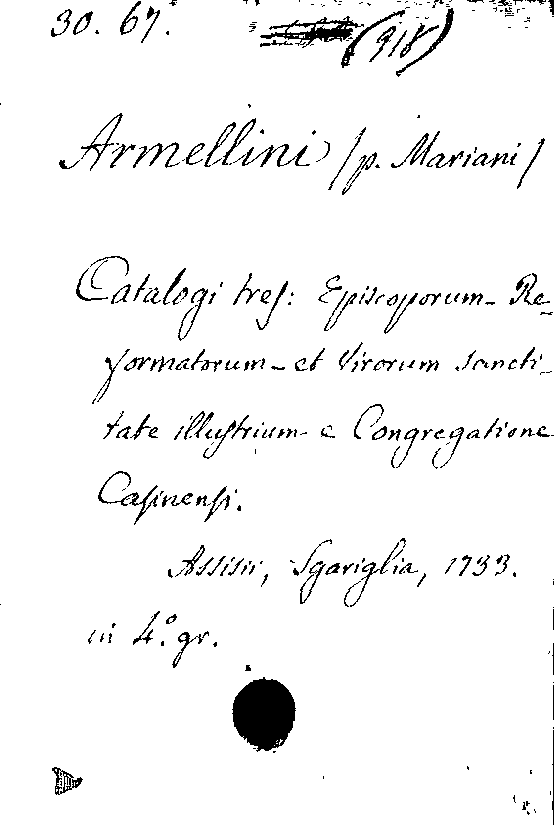 30. 67. (918)
Armellini /p. Mariani/
Catalogi tres: Episcoporum- Re-
formatorum- et Virorum sancti-
tate illustrium- e Congregatione
Casinensi.
Assisii, Sgariglia, 1733.
in 4.º gr.